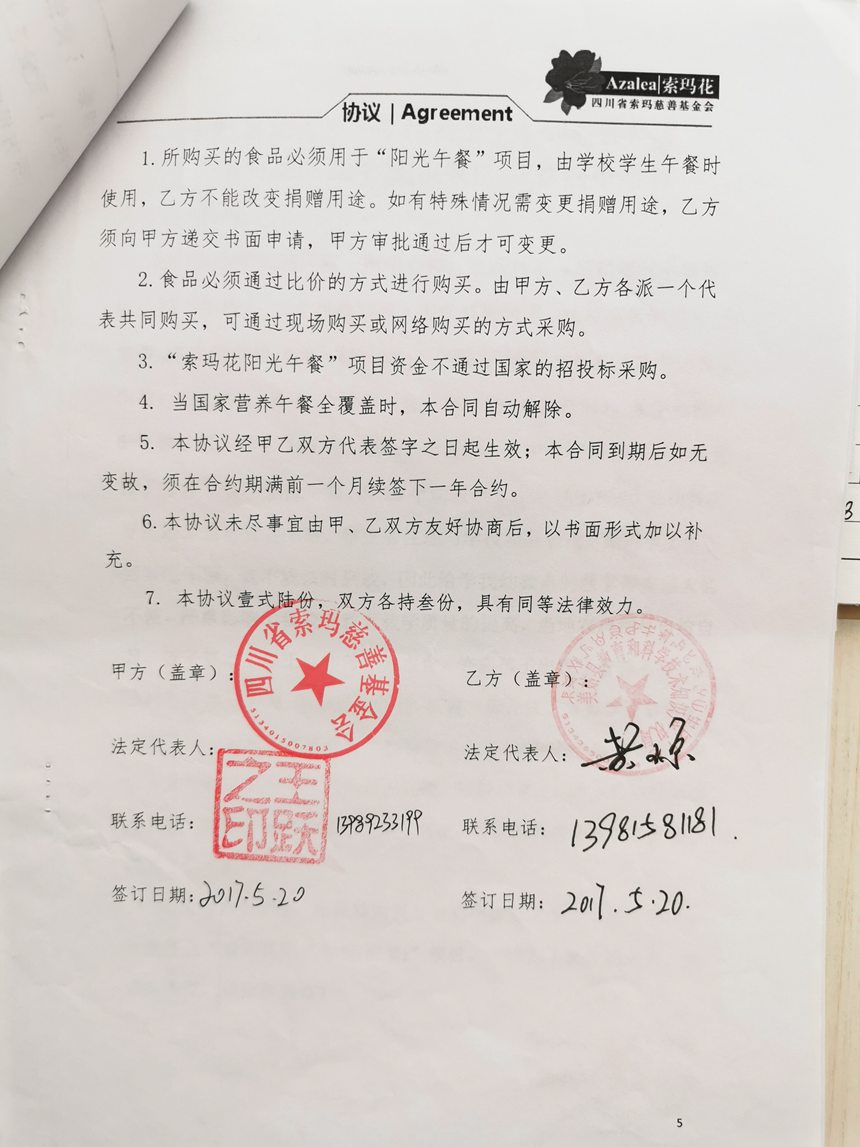 Azalea|索玛花
四川省索玛慈善基金会
协议 | Agreement
1.所购买的食品必须用于“阳光午餐”项目，由学校学生午餐时
使用，乙方不能改变捐赠用途。如有特殊情况需变更捐赠用途，乙方
须向甲方递交书面申请，甲方审批通过后才可变更。
2.食品必须通过比价的方式进行购买。由甲方、乙方各派一个代
表共同购买，可通过现场购买或网络购买的方式采购。
3.“索玛花阳光午餐”项目资金不通过国家的招投标采购。
4. 当国家营养午餐全覆盖时，本合同自动解除。
5. 本协议经甲乙双方代表签字之日起生效；本合同到期后如无
变故，须在合约期满前一个月续签下一年合约。
6.本协议未尽事宜由甲、乙双方友好协商后，以书面形式加以补
充。
7. 本协议壹式陆份，双方各持叁份，具有同等法律效力。
四川省索玛慈善基金会
5134015007803
甲方（盖章）：
乙方（盖章）：
法定代表人：
法定代表人：
王跃之印
联系电话： 13989233199
联系电话： 13981581181.
签订日期：2017.5.20
签订日期： 2017.5.20.
3
5